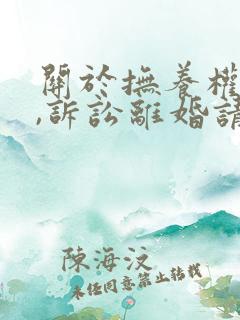 關於撫養權
,訴訟離婚請
陳海汶
未经同意禁止转载